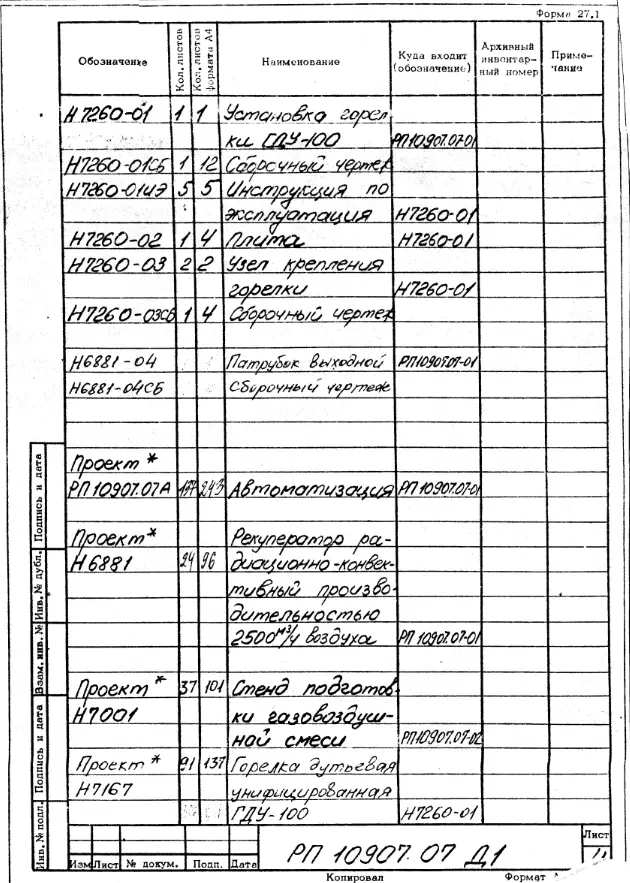 Форма 27.1
Обозначение Кол. листов Кол. листов формата А4 Наименование Куда входит (обозначение) Архивный инвентарный номер Примечание
Н7260-01 1 1 Установка горел-
ки ГДУ-100 РП10907.07-01
Н7260-01СБ 1 12 Сборочный чертеж
Н7260-01ИЭ 5 5 Инструкция по
эксплуатация Н7260-01
Н7260-02 1 4 Плита Н7260-01
Н7260-03 2 2 Узел крепления
горелки Н7260-01
Н7260-03СБ 1 4 Сборочный чертеж
Н6881-04 Патрубок выходной РП10907.07-01
Н6881-04СБ Сборочный чертеж
Проект *
РП10907.07А 177 243 Автоматизация РП10907.07-01
Проект * Рекуператор ра-
Н6881 24 96 диационно-конвек-
тивный произво-
дительностью
2500 м³/ч воздуха РП10907.07-01
Проект * 37 101 Стенд подготов-
Н7001 ки газовоздуш-
ной смеси РП10907.07-02
Проект * 91 137 Горелка дутьевая
Н7167 унифицированная
ГДУ-100 Н7260-01
Инв.№ подл. Подпись и дата Взам. инв.№ Инв.№ дубл. Подпись и дата
Изм Лист № докум. Подп. Дата
РП 10907.07 Д1
Лист
Копировал Формат